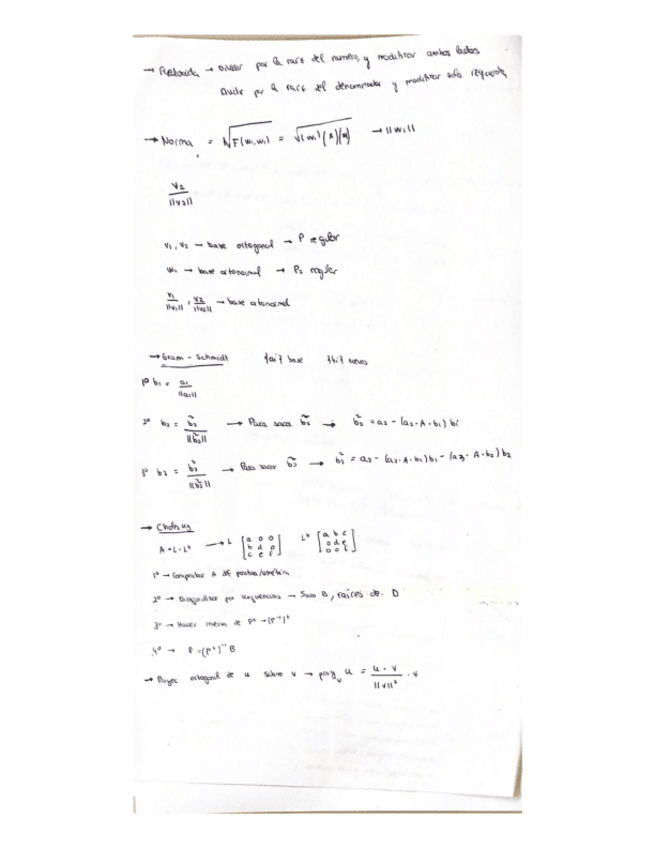 → Reducida → Dividir por la raiz del numero, y modificar ambos lados
Dividir por la raiz del denominador y modificar solo
→ Norma = √F(w₁,w₁) = √(w₁)(A)(w₁) → ||w₁||
v₂/||v₂||
v₁, v₂ → base ortogonal → P regular
w₁ → base ortonormal → P₂ regular
v₁/||v₁||, v₂/||v₂|| → base ortonormal
→ Gram - Schmidt {ai} base {bi} nuevos
1º b₁ = a₁/||a₁||
2º b₂ = b̃₂/||b̃₂|| → Para sacar b̃₂ → b̃₂ = a₂ - (a₂·A·b₁) b₁
3º b₃ = b̃₃/||b̃₃|| → Para sacar b̃₃ → b̃₃ = a₃ - (a₃·A·b₁) b₁ - (a₃·A·b₂) b₂
→
A = L·Lᵗ → L [a 0 0; b d 0; c e f] Lᵗ [a b c; 0 d e; 0 0 f]
1º → Comprobar A
2º → Diagonalizar por congruencias → Saco B, raíces de D
3º → Hacer inversa de Pᵗ → (Pᵗ)⁻¹
4º → = (Pᵗ)⁻¹ B
→ Proyec ortogonal de u sobre v → proyᵥ u = u · v/||v||² · v